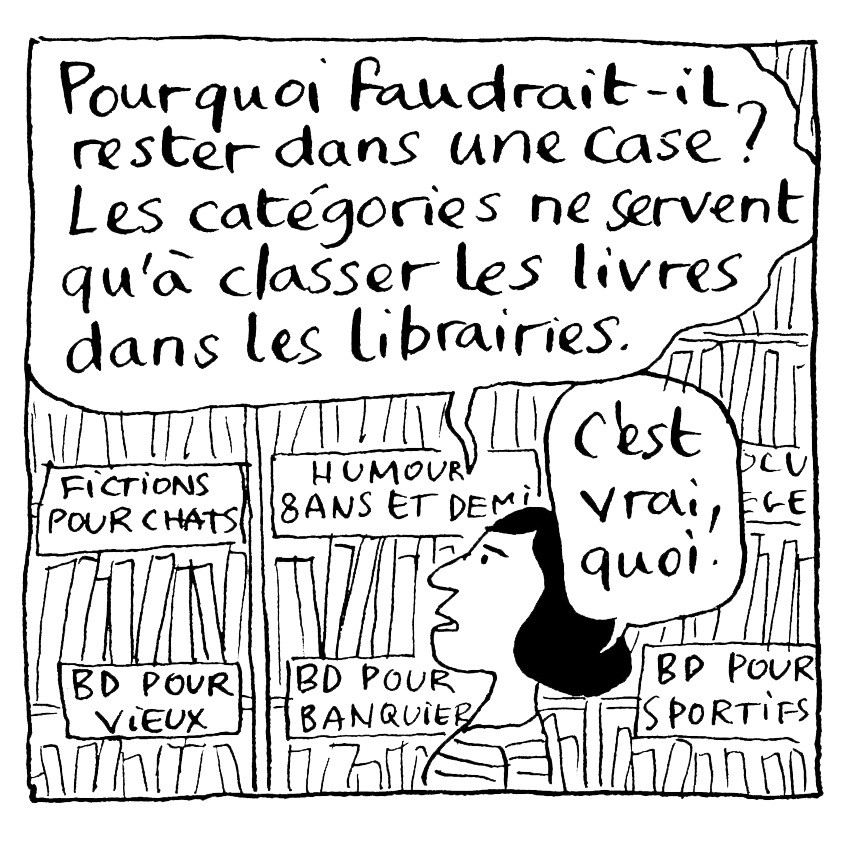 Pourquoi faudrait-il
rester dans une case ?
Les catégories ne servent
qu'à classer les livres
dans les librairies.
C'est
vrai,
quoi.
FICTIONS
POUR CHATS
HUMOUR
8 ANS ET DEMI
BD POUR
VIEUX
BD POUR
BANQUIER
BD POUR
SPORTIFS